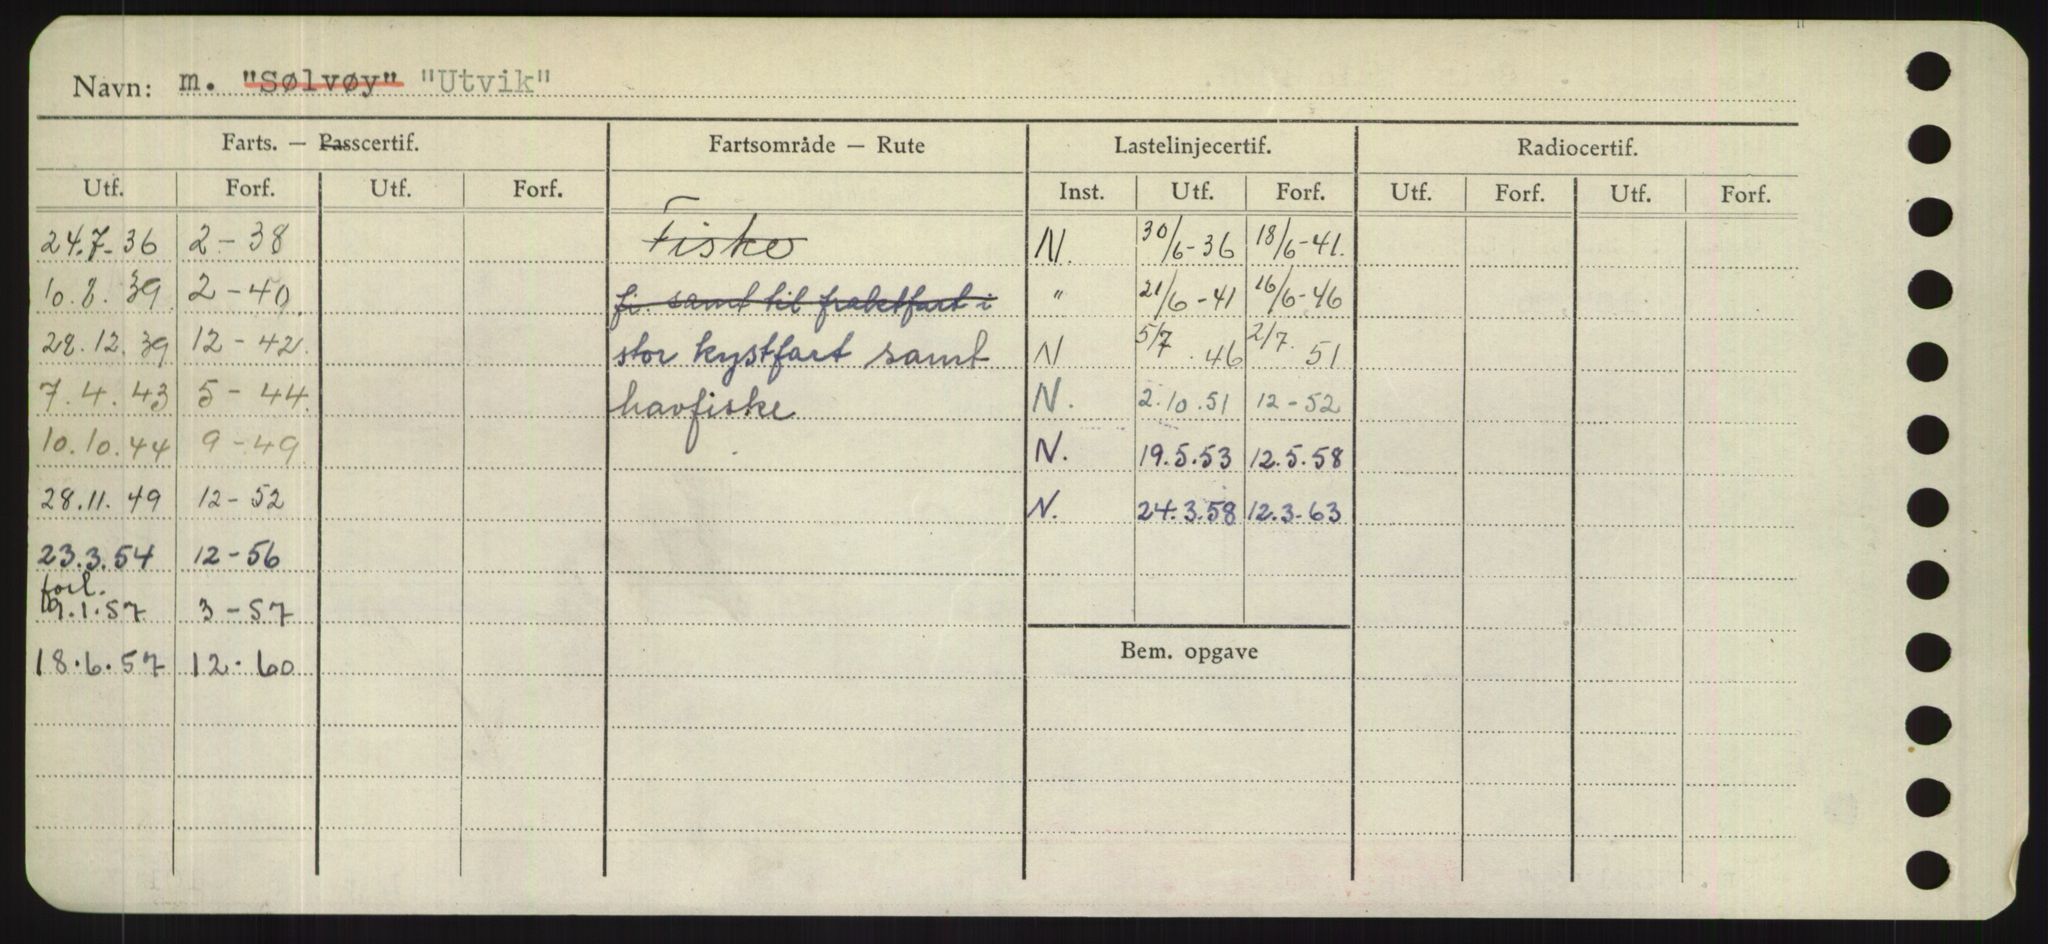 Navn: m. "Sølvøy" "Utvik"
Farts. — Passcertif. Fartsområde — Rute Lastelinjecertif. Radiocertif.
Utf. Forf. Utf. Forf. Inst. Utf. Forf. Utf. Forf. Utf. Forf.
24.7-36 2-38 Fiske N. 30/6-36 18/6-41.
10.8.39 2-40 fi. samt til fraktfart i " 21/6-41 16/6-46
28.12.39 12-42. stor kystfart samt N 5/7.46 2/7.51
7.4.43 5-44. havfiske N. 2.10.51 12-52
10.10.44 9-49 N. 19.5.53 12.5.58
28.11.49 12-52 N. 24.3.58 12.3.63
23.3.54 12-56
forl.
19.1.57 3-57
Bem. opgave
18.6.57 12.60